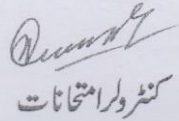 کنٹرولر امتحانات